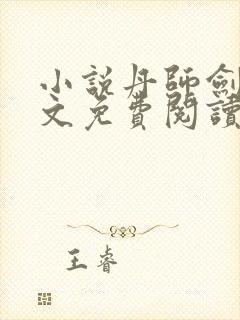 小說丹師劍
文免費閱讀
王睿